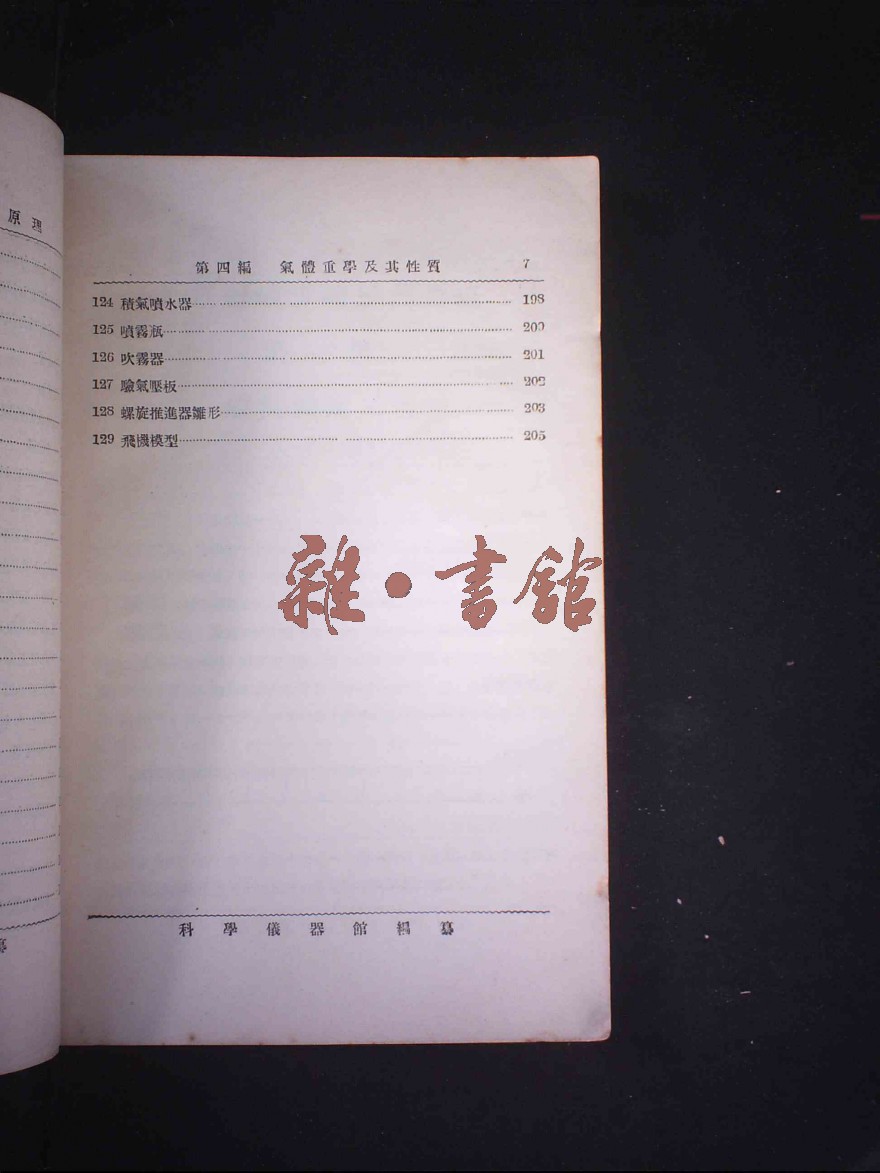 原理
第四編 氣體重學及其性質 7
124 積氣噴水器 198
125 噴霧瓶 200
126 吹霧器 201
127 驗氣壓板 202
128 螺旋推進器雛形 203
129 飛機模型 205
雜·書館
科學儀器館編纂